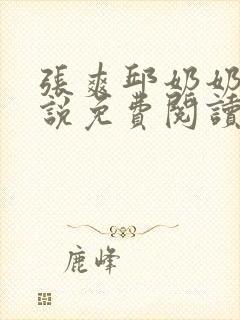 張爽邱奶奶
說免費閱讀
鹿峰